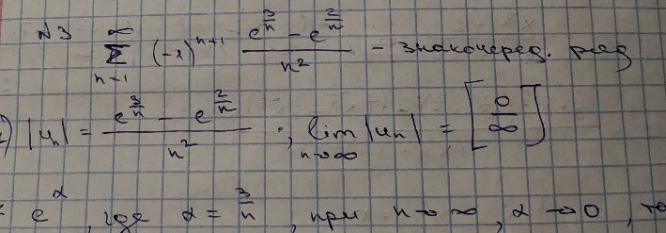 N3 ∞ Σ n=1 (-1)^{n+1} (e^{3/n} - e^{2/n})/n² - знакочеред. ряд
1) |u_n| = (e^{3/n} - e^{2/n})/n² ; lim n→∞ |u_n| = [0/∞]
e^α, где α = 3/n, при n→∞, α→0, то